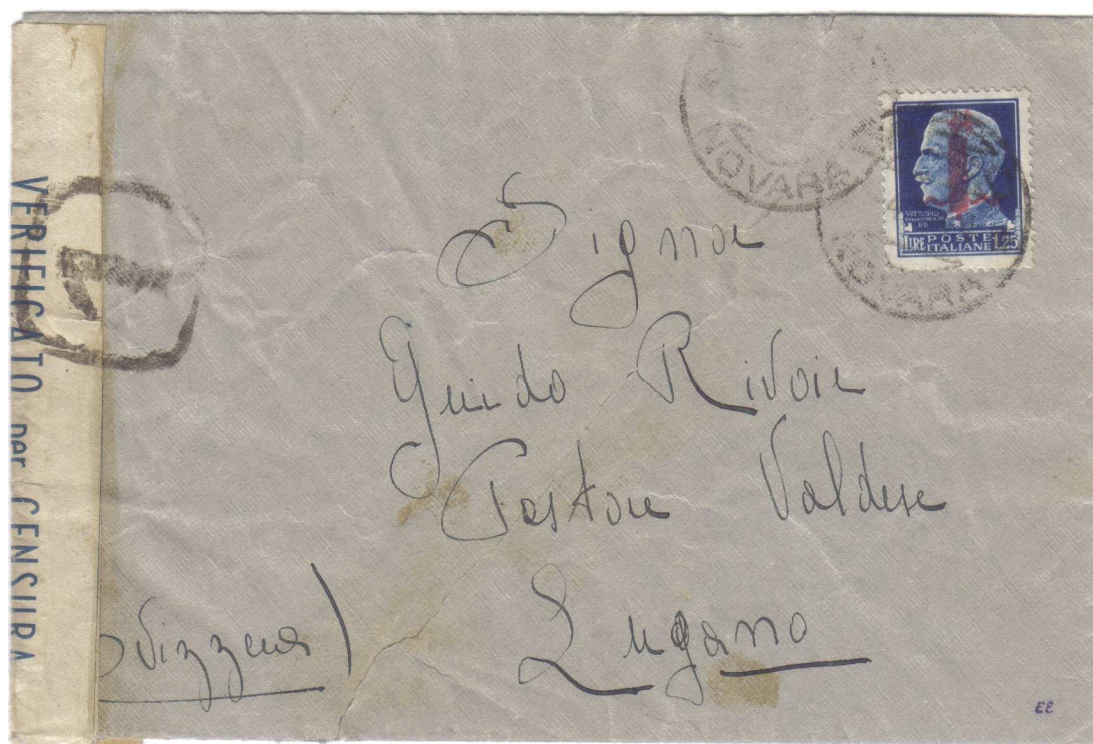 VERIFICATO per CENSURA
NOVARA
NOVARA
VITTORIO
1 LIRE POSTE ITALIANE L.25
Signor
Guido Rivoir
Pastore Valdese
Lugano
Svizzera)
EE